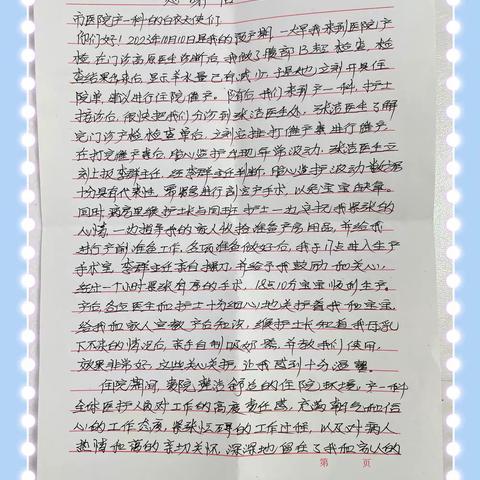 感谢信
市医院产一科的白衣天使们
你们好！2023年10月10日是我的预产期，一大早我来到医院产
检，在门诊高原医生诊断后，我做了腹部B超检查，检
查结果出来后，显示羊水量已经减少，于是她立刻开具住
院单，建议进行住院催产。随后我们来到产一科，护士
接诊后，很快把我们分诊到张洁医生处，张洁医生了解
完门诊产检检查单后，立刻安排打催产素进行催产，
在打完催产素后，胎心监护出现异常波动，张洁医生立
刻上报李群主任，经李群主任判断，胎心监护波动数据
十分具有代表性，需紧急进行剖宫产手术，以免宝宝缺氧。
同时病房里护士长与同班护士一边安抚我紧张的
心情，一边指导我的家人收拾准备产房用品，并给我
进行产前准备工作，各项准备做好后，我于八点进入生产
手术室，李群主任亲自操刀，并给予我鼓励和关心，
经过一个小时紧张有序的手术，18点10分宝宝顺利生产。
产后各位医生和护士十分细心地关护着我和宝宝，
给我和家人宣教产后知识，护士长知道我母乳
下不来的情况后，亲手自制吸奶器，并教我们使用，
效果非常好，这些关心关护，让我感到十分温馨。
住院期间，贵院整洁舒适的住院环境，产一科
全体医护人员对工作的高度责任感，充满朝气和信
心的工作态度，紧张忙碌的工作过程，以及对病人
热情和蔼的亲切关怀，深深地留在了我和家人的
第 页